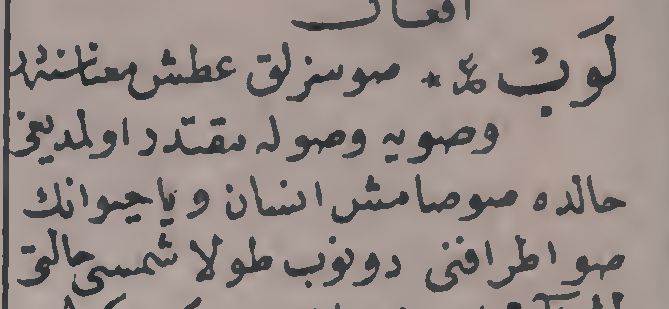 افعال
لَوبْ * صوسزلق عطش معناسنه
وصویه وصوله مقتدر اولمدیغی
حالده صوصامش انسان ویا حیوانك
صو اطرافنی دونوب طولاشمسی حالتی